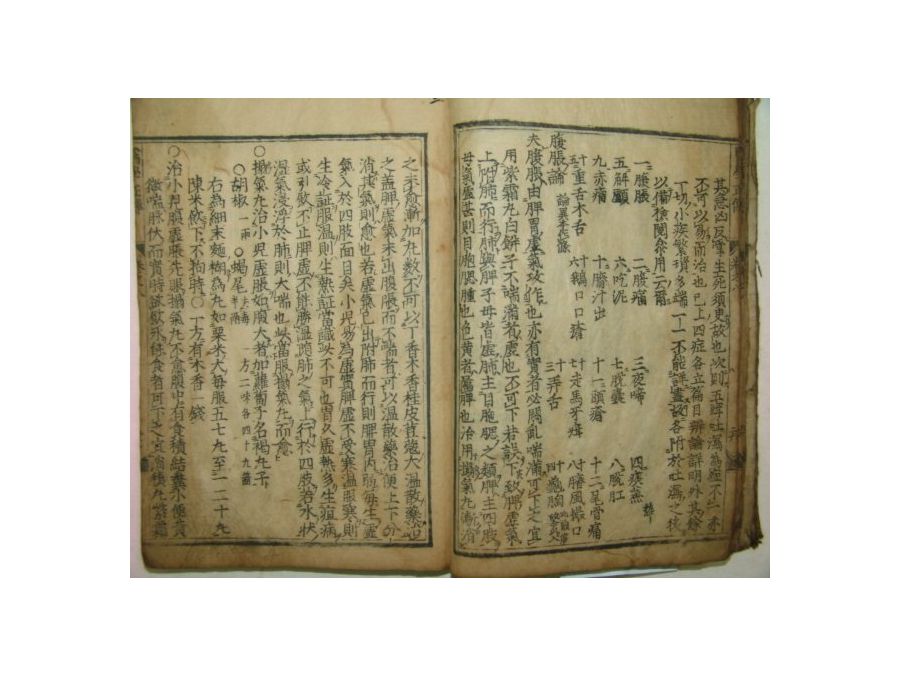 其急凶反掌生死須更故也次則五疳吐瀉為症不一亦
不可以易而治也已上四症各立篇目辨論詳明外其餘
一切小疾繁積多端一一不能詳盡故各附於吐瀉之後
以備檢閱參用云爾
一腹脹 二腹痛 三夜啼 四疾
五解顱 六吃泥 七脫囊 八脫肛
九赤瘤 十臍汁出 十一頭瘡 十二尾骨痛
十重舌木舌 六鵝口口瘡 十走馬牙疳 八臍風撮口
三弄舌 十龜胸
腹脹論
夫腹脹由脾胃虛氣攻作也亦有實者必悶亂喘滿可下之宜
用紫霜丸白餅子不喘滿者虛也不可下若誤下致脾虛氣
上附肺而行肺與脾子母皆虛肺主目胞腮之類脾主四肢
母氣虛甚則目胞腮腫也色黃者屬脾也治用搨氣丸漸消
之未愈漸加丸數不可以丁香木香桂皮荳蔻大溫散藥治
之盖脾虛氣未出腹脹而不喘者可以溫散藥治使上下分
消其氣則愈也若虛氣已出附肺而行則脾胃內弱每生虛
氣入於四肢面目矣小兒易為虛實脾虛不受寒溫服寒則
生冷証服溫則生熱証當識此不可也胃久虛熱多生疸病
或引飲不止脾虛不能勝溫隨肺之氣上行於四肢若水狀
溫氣浸浮於肺則大喘也此當服搨氣丸而愈
○搨氣丸治小兒虛脹如腹大者加蘿蔔子名褐丸子
○胡椒一兩 ○蝎尾半兩 一方二味各四十九箇
右為細末麵糊為丸如粟米大每服五七丸至一二十丸
陳米飲下不拘時○十方有木香一錢
○治小兒腹虛脹先服搨氣丸不愈腹中有食積結糞小便黃
微喘脉伏而實時飲水能食者可下之